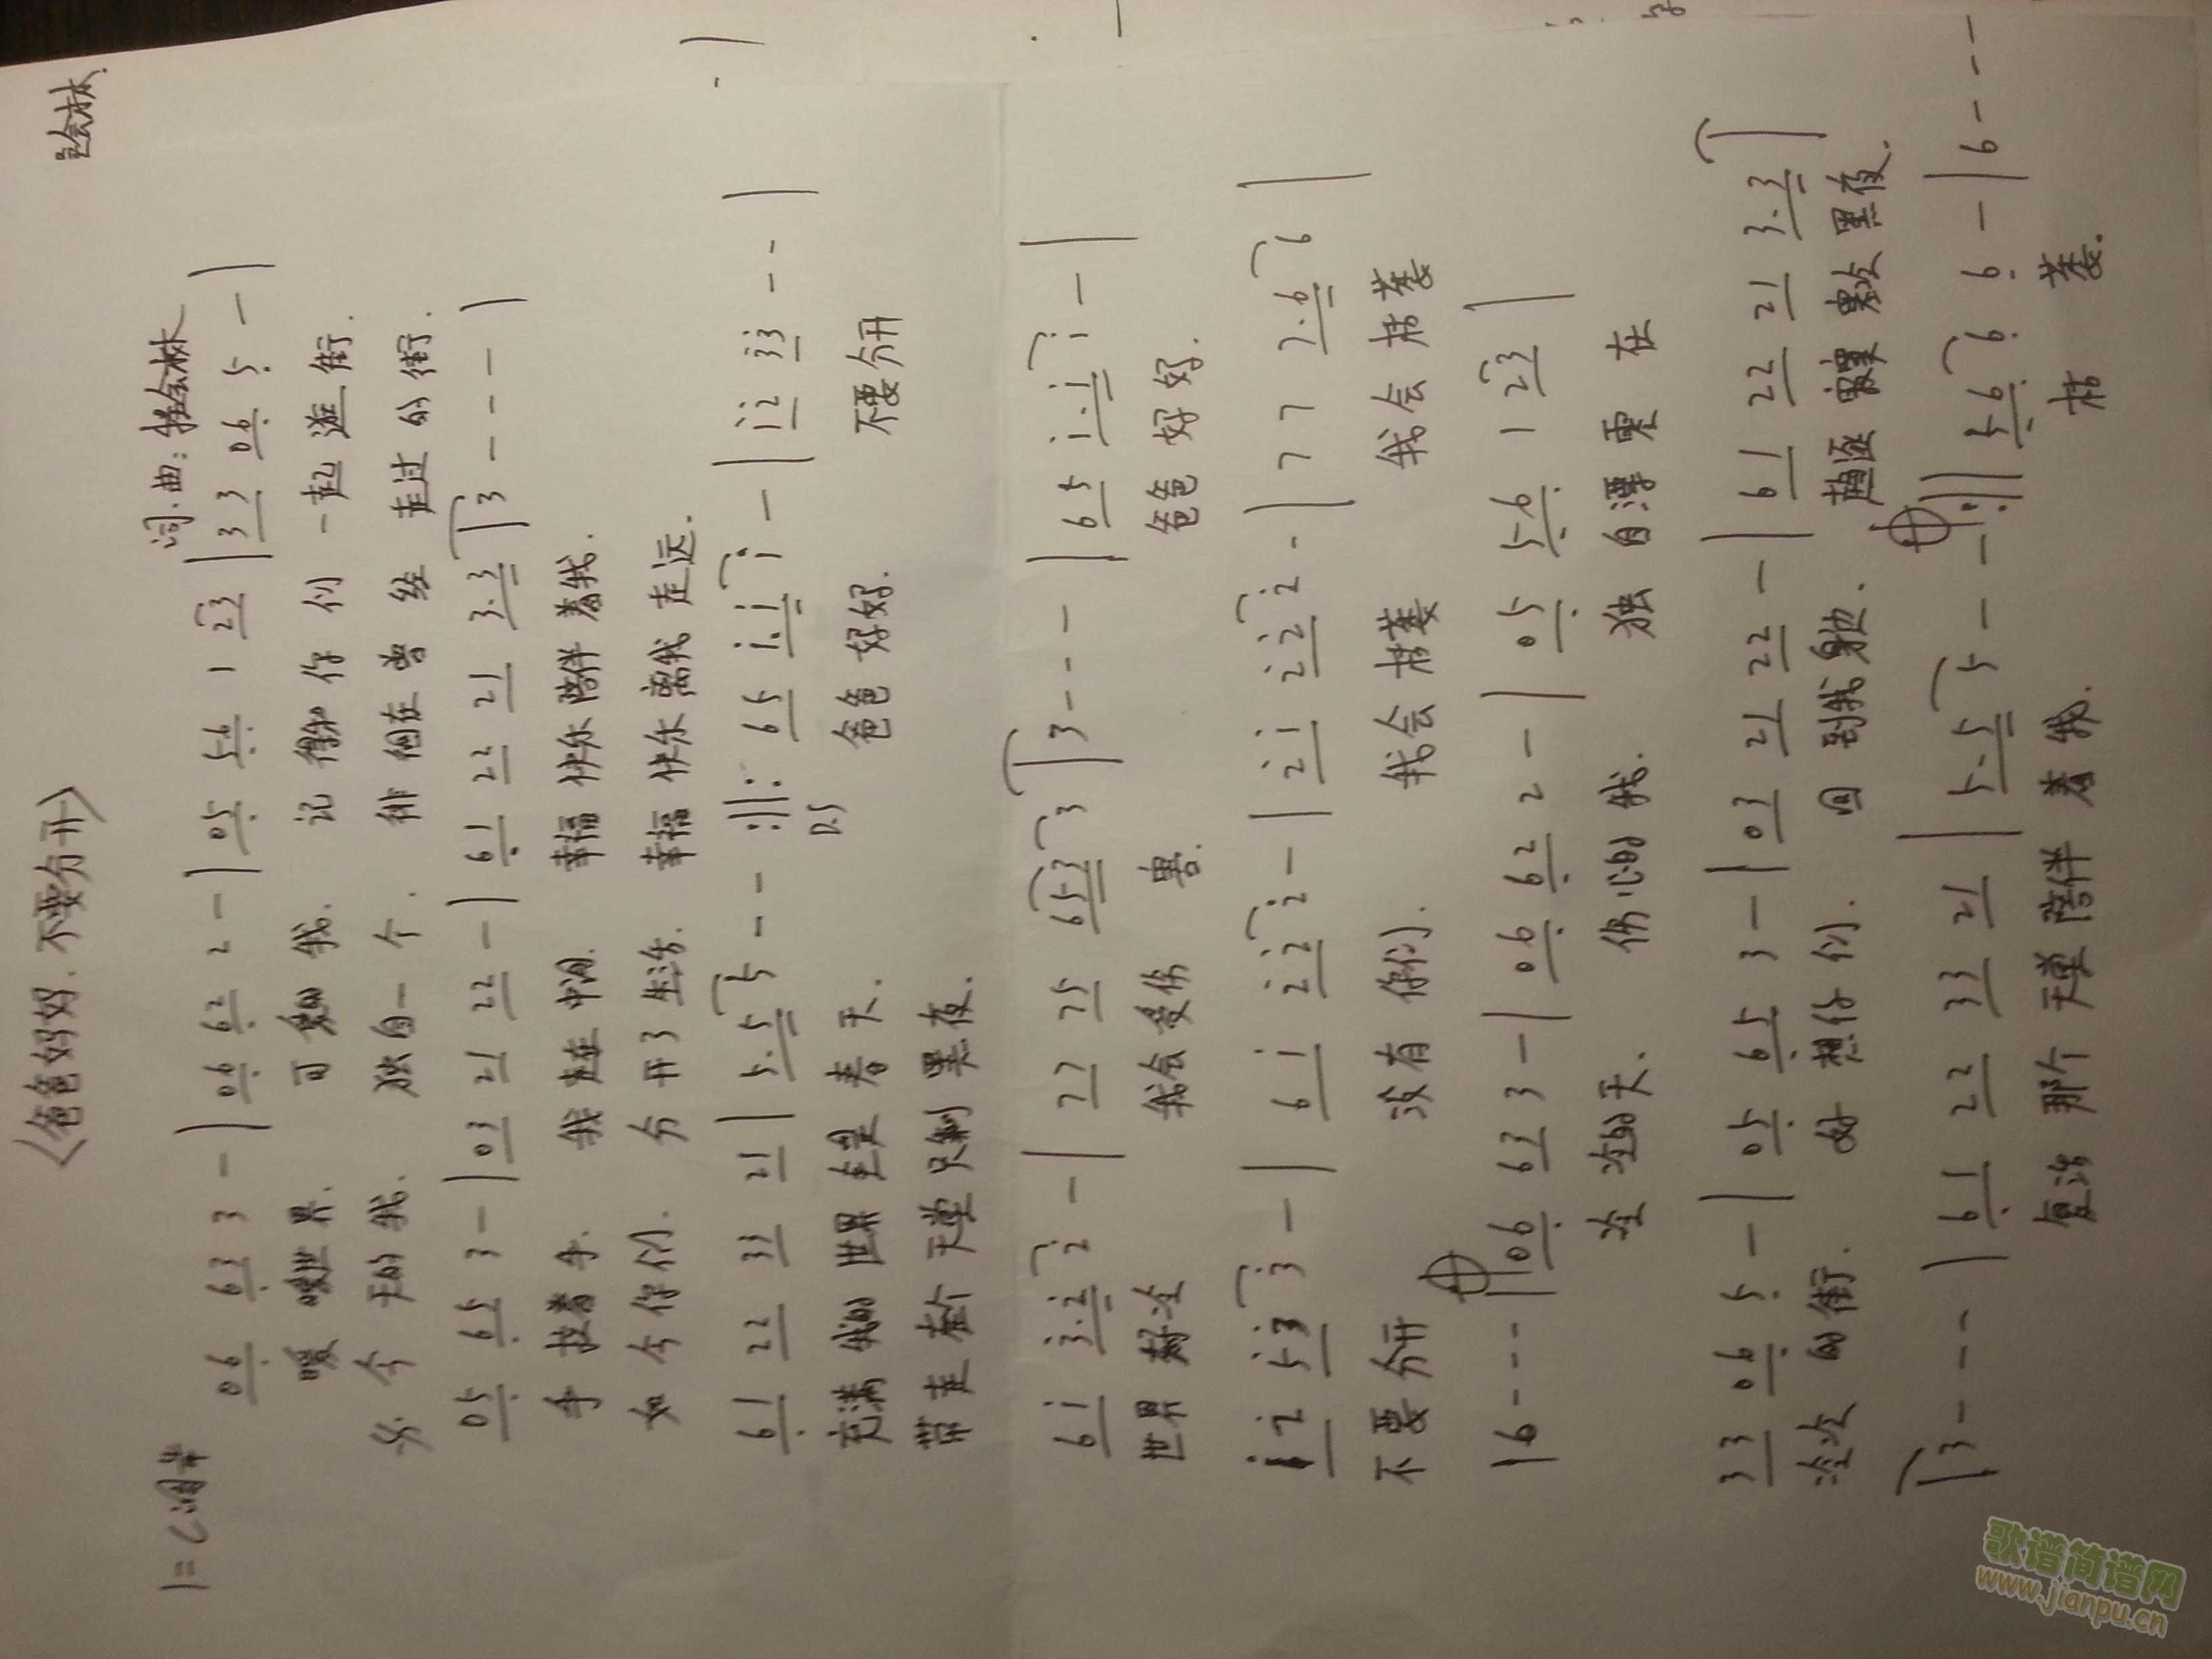 《爸爸妈妈.不要分开》
1=C调
词.曲:
0 6 6 3 3 - | 0 6 6 2 2 - | 0 5 5 6 1 2 3 | 3 3 0 6 5 - |
暖 暖世界. 可 爱的 我. 记 得和 你 们 一起 逛 街.
今 天的 我. 独 自一 个. 徘 徊在 曾 经 走过 的 街.
0 5 6 5 3 - | 0 3 2 1 2 2 - | 6 1 2 2 2 1 3.3 | 3 - - - |
手 拉着 手. 我 走在 中间. 幸福 快乐 陪伴 着我.
如 今 你们. 分 开了 生活. 幸福 快乐 离我 走远.
6 1 2 2 3 3 2 1 | 5.5 5 - - :||: 6 5 i.i i - | i 2 3 3 - - |
D.S
充满 我的 世界 全是 春 天. 爸爸 好好. 不要 分开
带走 整个 天堂 只剩 黑夜.
6 i 3.2 2 - | 2 7 7 5 6 5 3 3 | 3 - - - | 6 5 i.i i - |
世界 好冷 我会 受伤 害. 爸爸 好好.
i 2 5 3 3 - | 6 i 2 2 2 - | 2 i 2 2 2 - | 7 7 7.6 6 |
不要 分开 没有 你们. 我会 枯萎 我会 枯萎
| 6 - - - | 0 6 6 3 3 - | 0 6 6 2 2 - | 0 5 5 6 1 2 3 |
冷 冷的 天. 伤心的 我. 独 自 漂 零 在
3 3 0 6 5 - | 0 5 6 5 3 - | 0 3 2 1 2 2 - | 6 1 2 2 2 1 3.3 |
冷冷 的 街. 好 想你 们. 回 到我 身边. 趋逐 寂寞 寒冷 黑夜.
| 3 - - - | 6 1 2 2 3 3 2 1 | 5.5 5 - - :|| 5 6 6 6 - | 6 - - -
复活 那个 天堂 陪伴 着 我. 枯 萎.
歌谱简谱网
www.jianpu.cn